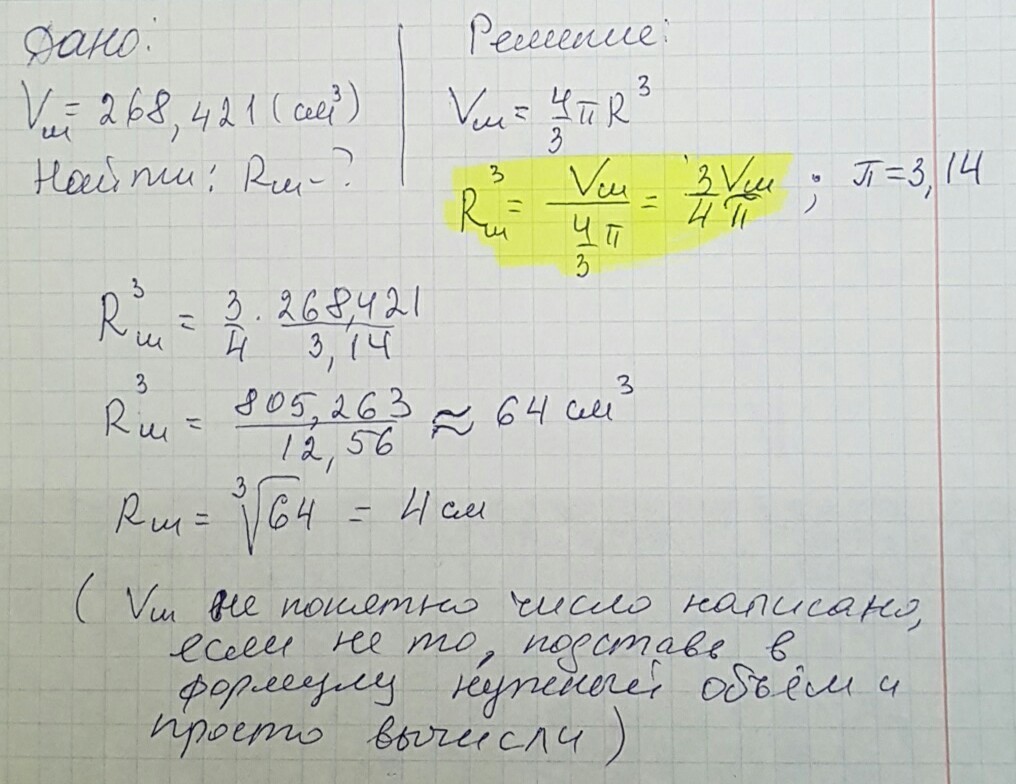 Дано:
Vш = 268,421 (см³)
Найти: Rш - ?
Решение:
Vш = 4/3 π R³
Rш³ = Vш / (4/3 π) = 3/4 Vш/π ; π = 3,14
Rш³ = 3/4 · 268,421/3,14
Rш³ = 805,263/12,56 ≈ 64 см³
Rш = ³√64 = 4 см
( Vш не понятно число написано,
если не то, подставь в
формулу нужный объём и
просто вычисли )